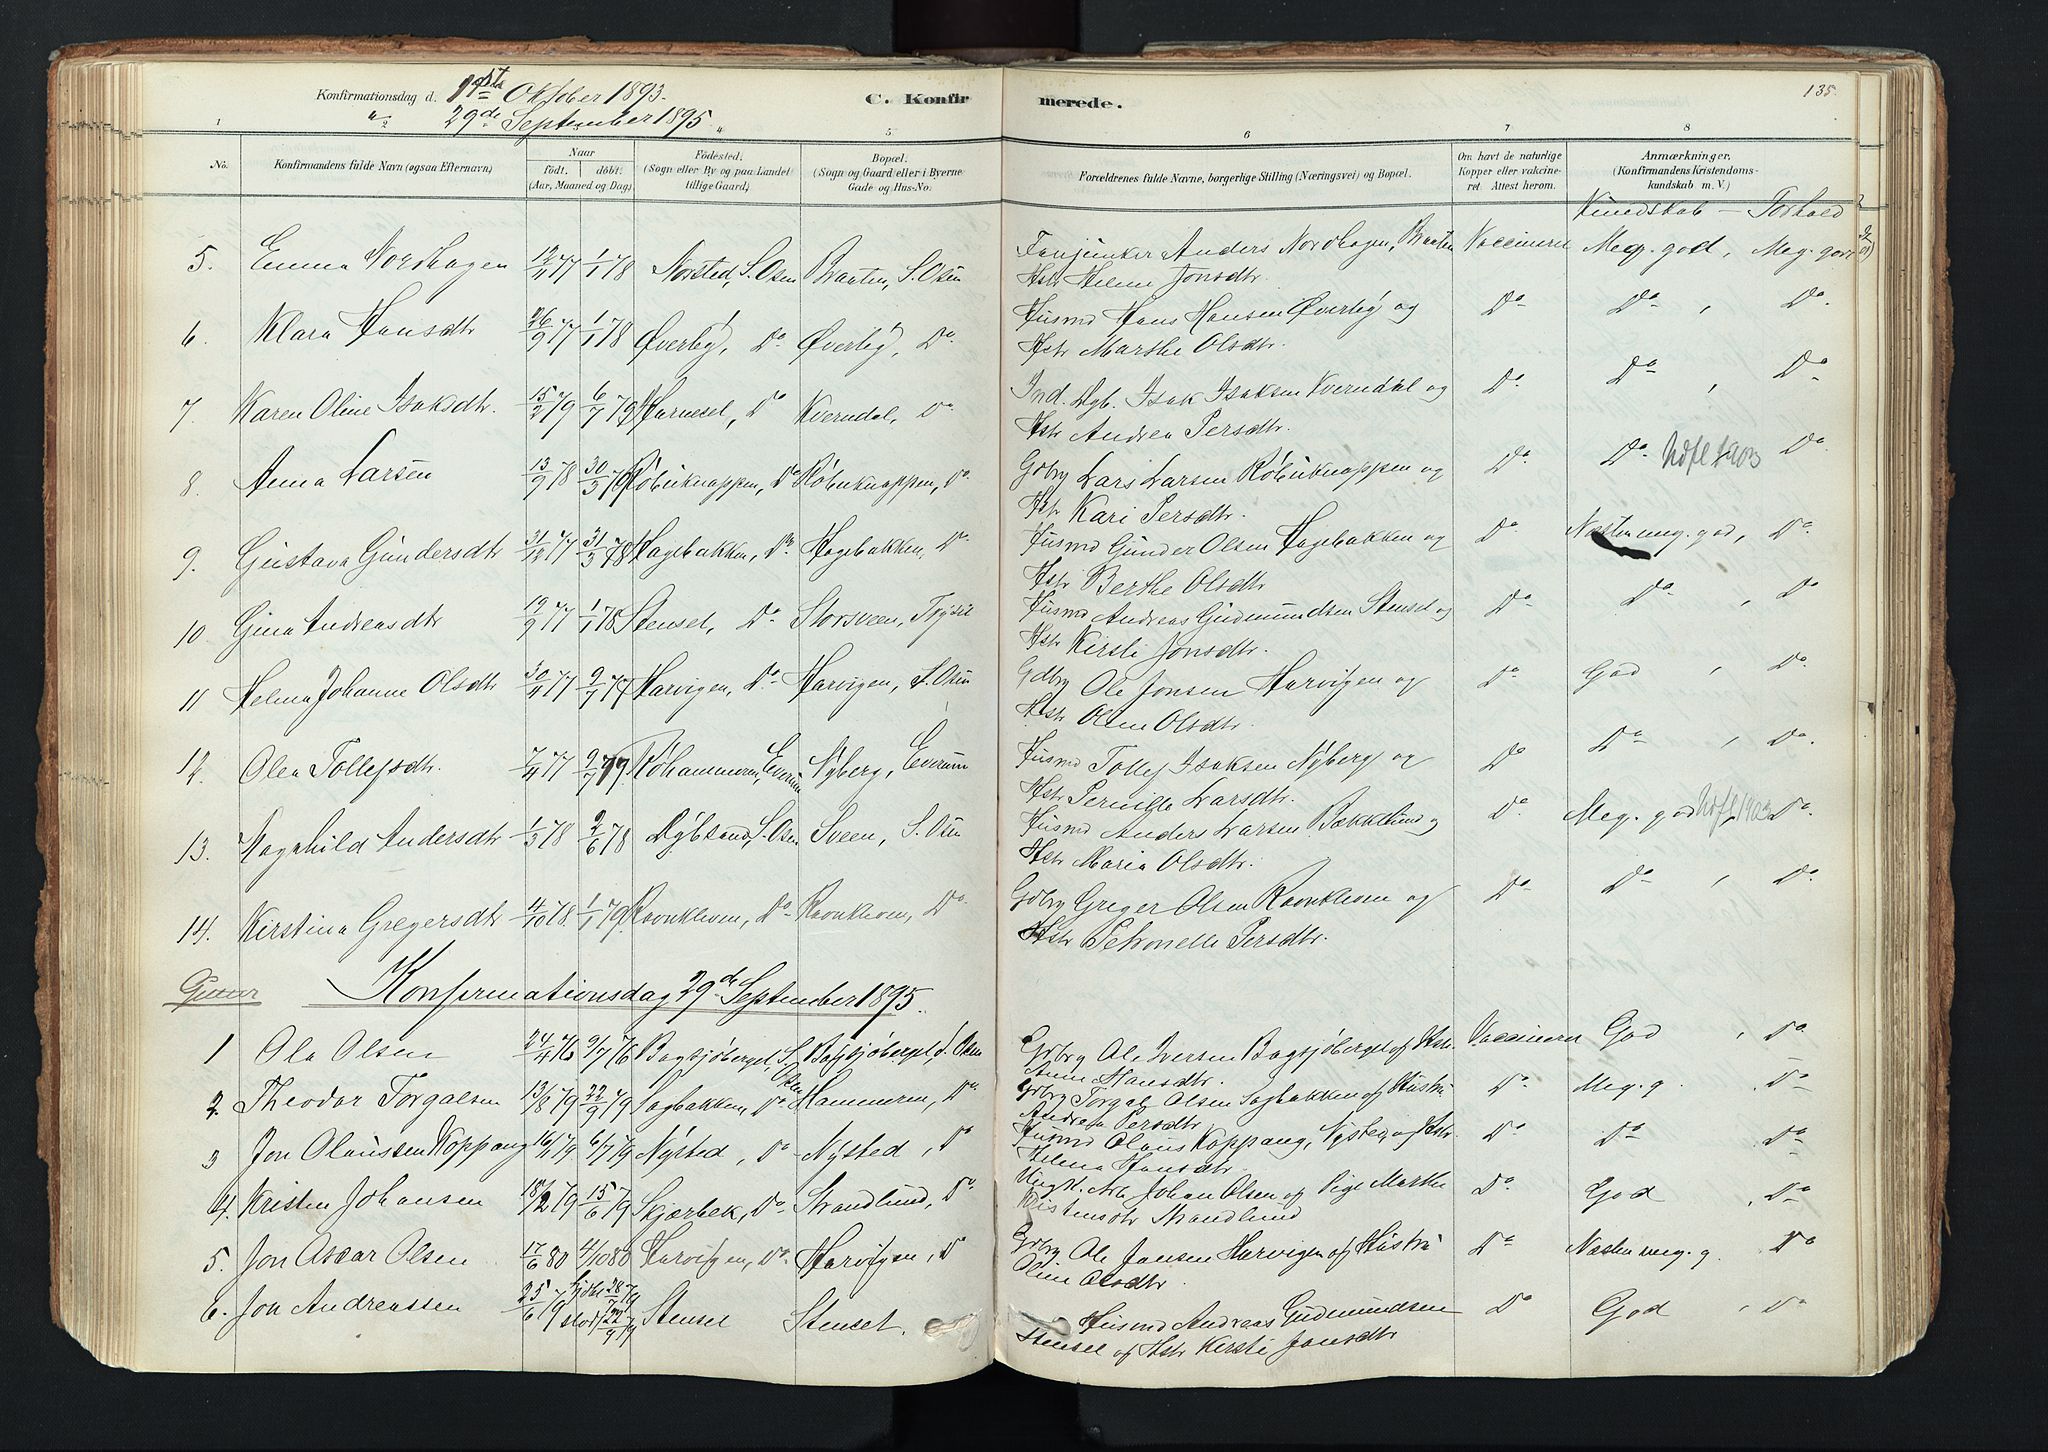 Konfirmationsdag d. 1ste Oktober 1893.
29de September 1895.
C. Konfirmerede.
135.
1 2 4 5 6 7 8
No. Konfirmandens fulde Navn (ogsaa Efternavn) Naar født. døbt. (Aar, Maaned og Dag) Fødested. (Sogn eller By og paa Landet tillige Gaard.) Bopæl. (Sogn og Gaard eller i Byerne Gade og Hus-No.) Forældrenes fulde Navne, borgerlige Stilling (Næringsvei) og Bopæl. Om havt de naturlige Kopper eller vakcineret. Attest herom. Anmærkninger. (Konfirmandens Kristendomskundskab m. V.)
Kundskab — Forhold
5. Emma Nordhagen 12/11 77 1/1 78 Norsted, S. Osen Braaten, S. Osen Fanjunker Anders Nordhagen, Braaten Vaccineret Meg. god, Meg. godt
Hstr Helene Jonsdtr.
6. Klara Hansdtr 26/9 77 1/1 78 Øverby, Do Øverby, Do. Husmd Hans Hansen Øverby og Do Do , Do.
Hstr Marthe Olsdtr.
7. Karen Oline Isaksdtr. 15/2 79 6/7 79 Harnesel, Do Kverndal, Do. Ind. Dgb. Isak Isaksen Kverndal og Do Do , Do
Hstr Andrea Persdtr.
8. Anna Larsen 13/9 78 30/3 79 Røbuknappen, Do Røbuknappen, Do. Gdbrg Lars Larsen Røbuknappen og Do. Do. Udfl 1903 Do
Hstr Kari Persdtr.
9. Gustava Gundersdtr 31/12 77 31/3 78 Hagebakken, Do. Hagebakken, Do Husmd Gunder Olsen Hagebakken og Do. Næsten meg. god, Do.
Hstr Berthe Olsdtr
10. Gina Andreasdtr 12/9 77 1/1 78 Stensel, Do Storsveen, Trysil Husmd Andreas Gudmundsen Stensel og Do. Do. , Do
Hstr Kirsti Jonsdtr.
11 Helma Johanne Olsdtr 30/4 77 2/7 77 Harvigen, Do. Harvigen, S. Osen Gdbrg Ole Jonsen Harvigen og Do. God , Do
Hstr Oline Olsdtr.
12. Olea Tollefsdtr. 7/4 77 2/7 77. Røhammeren, Elverum Nyberg, Elverum Husmd Tollef Isaksen Nyberg og Do Do , Do.
Hstr Pernille Larsdtr.
13. Ragnhild Andersdtr 1/3 78 2/6 78 Dybsand, S. Osen Sveen, S. Osen Husmd Anders Larsen Bækkelund og Do. Meg. god Udfl. 1903 Do.
Hstr Maria Olsdtr.
14. Kirstina Gregersdtr 14/10 78 1/1 79. Ravnkleven, Do. Ravnkleven, Do. Gdbrg Greger Olsen Ravnkleven og Do Do , Do.
Hstr Petronelle Persdtr.
Gutter Konfirmationsdag 29de September 1895.
1 Ole Olsen 24/4 76 9/7 76 Bagsjøberget, S. Osen Bagsjøberget, S. Osen Gdbrg Ole Iversen Bagsjøberget og Hstr. Vaccineret God , Do.
Anne Hansdtr.
2. Theodor Torgalsen 13/8 79 22/9 79 Sagbakken, Do. Hammeren, Do. Gdbrg Torgal Olsen Sagbakken og Hustru Do. Meg. g. Do
Andrea Persdtr.
3 Jon Olaussen Koppang 16/4 79 6/7 79 Nysted, Do Nysted, Do Husmd Olaus Koppang, Nysted og Hstr. Do. Do Do
Helena Hansdtr.
4. Kristen Johansen 18/2 79 15/6 79 Skjærbek, Do. Strandlund, Do Ungk. Arb Johan Olsen og Pige Marthe Do. God , Do
Kristensdtr Strandlund
5. Jon Oscar Olsen 17/6 80 4/10 80 Harvigen, Do. Harvigen, Do Gdbrg Ole Jonsen Harvigen og Hustru Do Næsten meg. g. Do
Oline Olsdtr.
6. Jon Andreassen 25/6 79 hjdbt 28/7 79 stad 22/9 79 Stensel Stensel. Husmd Andreas Gudmundsen Do God , Do
Stensel og Hstr Kirsti Jonsdtr